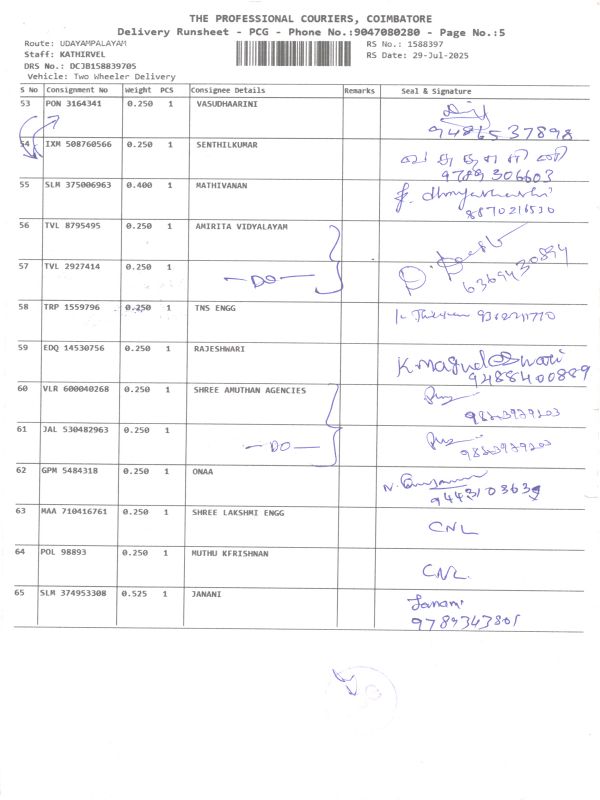 THE PROFESSIONAL COURIERS, COIMBATORE
Delivery Runsheet - PCG - Phone No.:9047080280 - Page No.:5
Route: UDAYAMPALAYAM RS No.: 1588397
Staff: KATHIRVEL RS Date: 29-Jul-2025
DRS No.: DCJB158839705
Vehicle: Two Wheeler Delivery
S No Consignment No Weight PCS Consignee Details Remarks Seal & Signature
53 PON 3164341 0.250 1 VASUDHAARINI
9486537898
54 IXM 508760566 0.250 1 SENTHILKUMAR
9789306603
55 SLM 375006963 0.400 1 MATHIVANAN
8870216530
56 TVL 8795495 0.250 1 AMIRITA VIDYALAYAM
57 TVL 2927414 0.250 1 —DO—
6369430894
58 TRP 1559796 0.250 1 TNS ENGG
59 EDQ 14530756 0.250 1 RAJESHWARI
9488400889
60 VLR 600040268 0.250 1 SHREE AMUTHAN AGENCIES
61 JAL 530482963 0.250 1 —DO—
62 GPM 5484318 0.250 1 ONAA
9443103639
63 MAA 710416761 0.250 1 SHREE LAKSHMI ENGG CNL
64 POL 98893 0.250 1 MUTHU KFRISHNAN CNL
65 SLM 374953308 0.525 1 JANANI Janani
9789343801